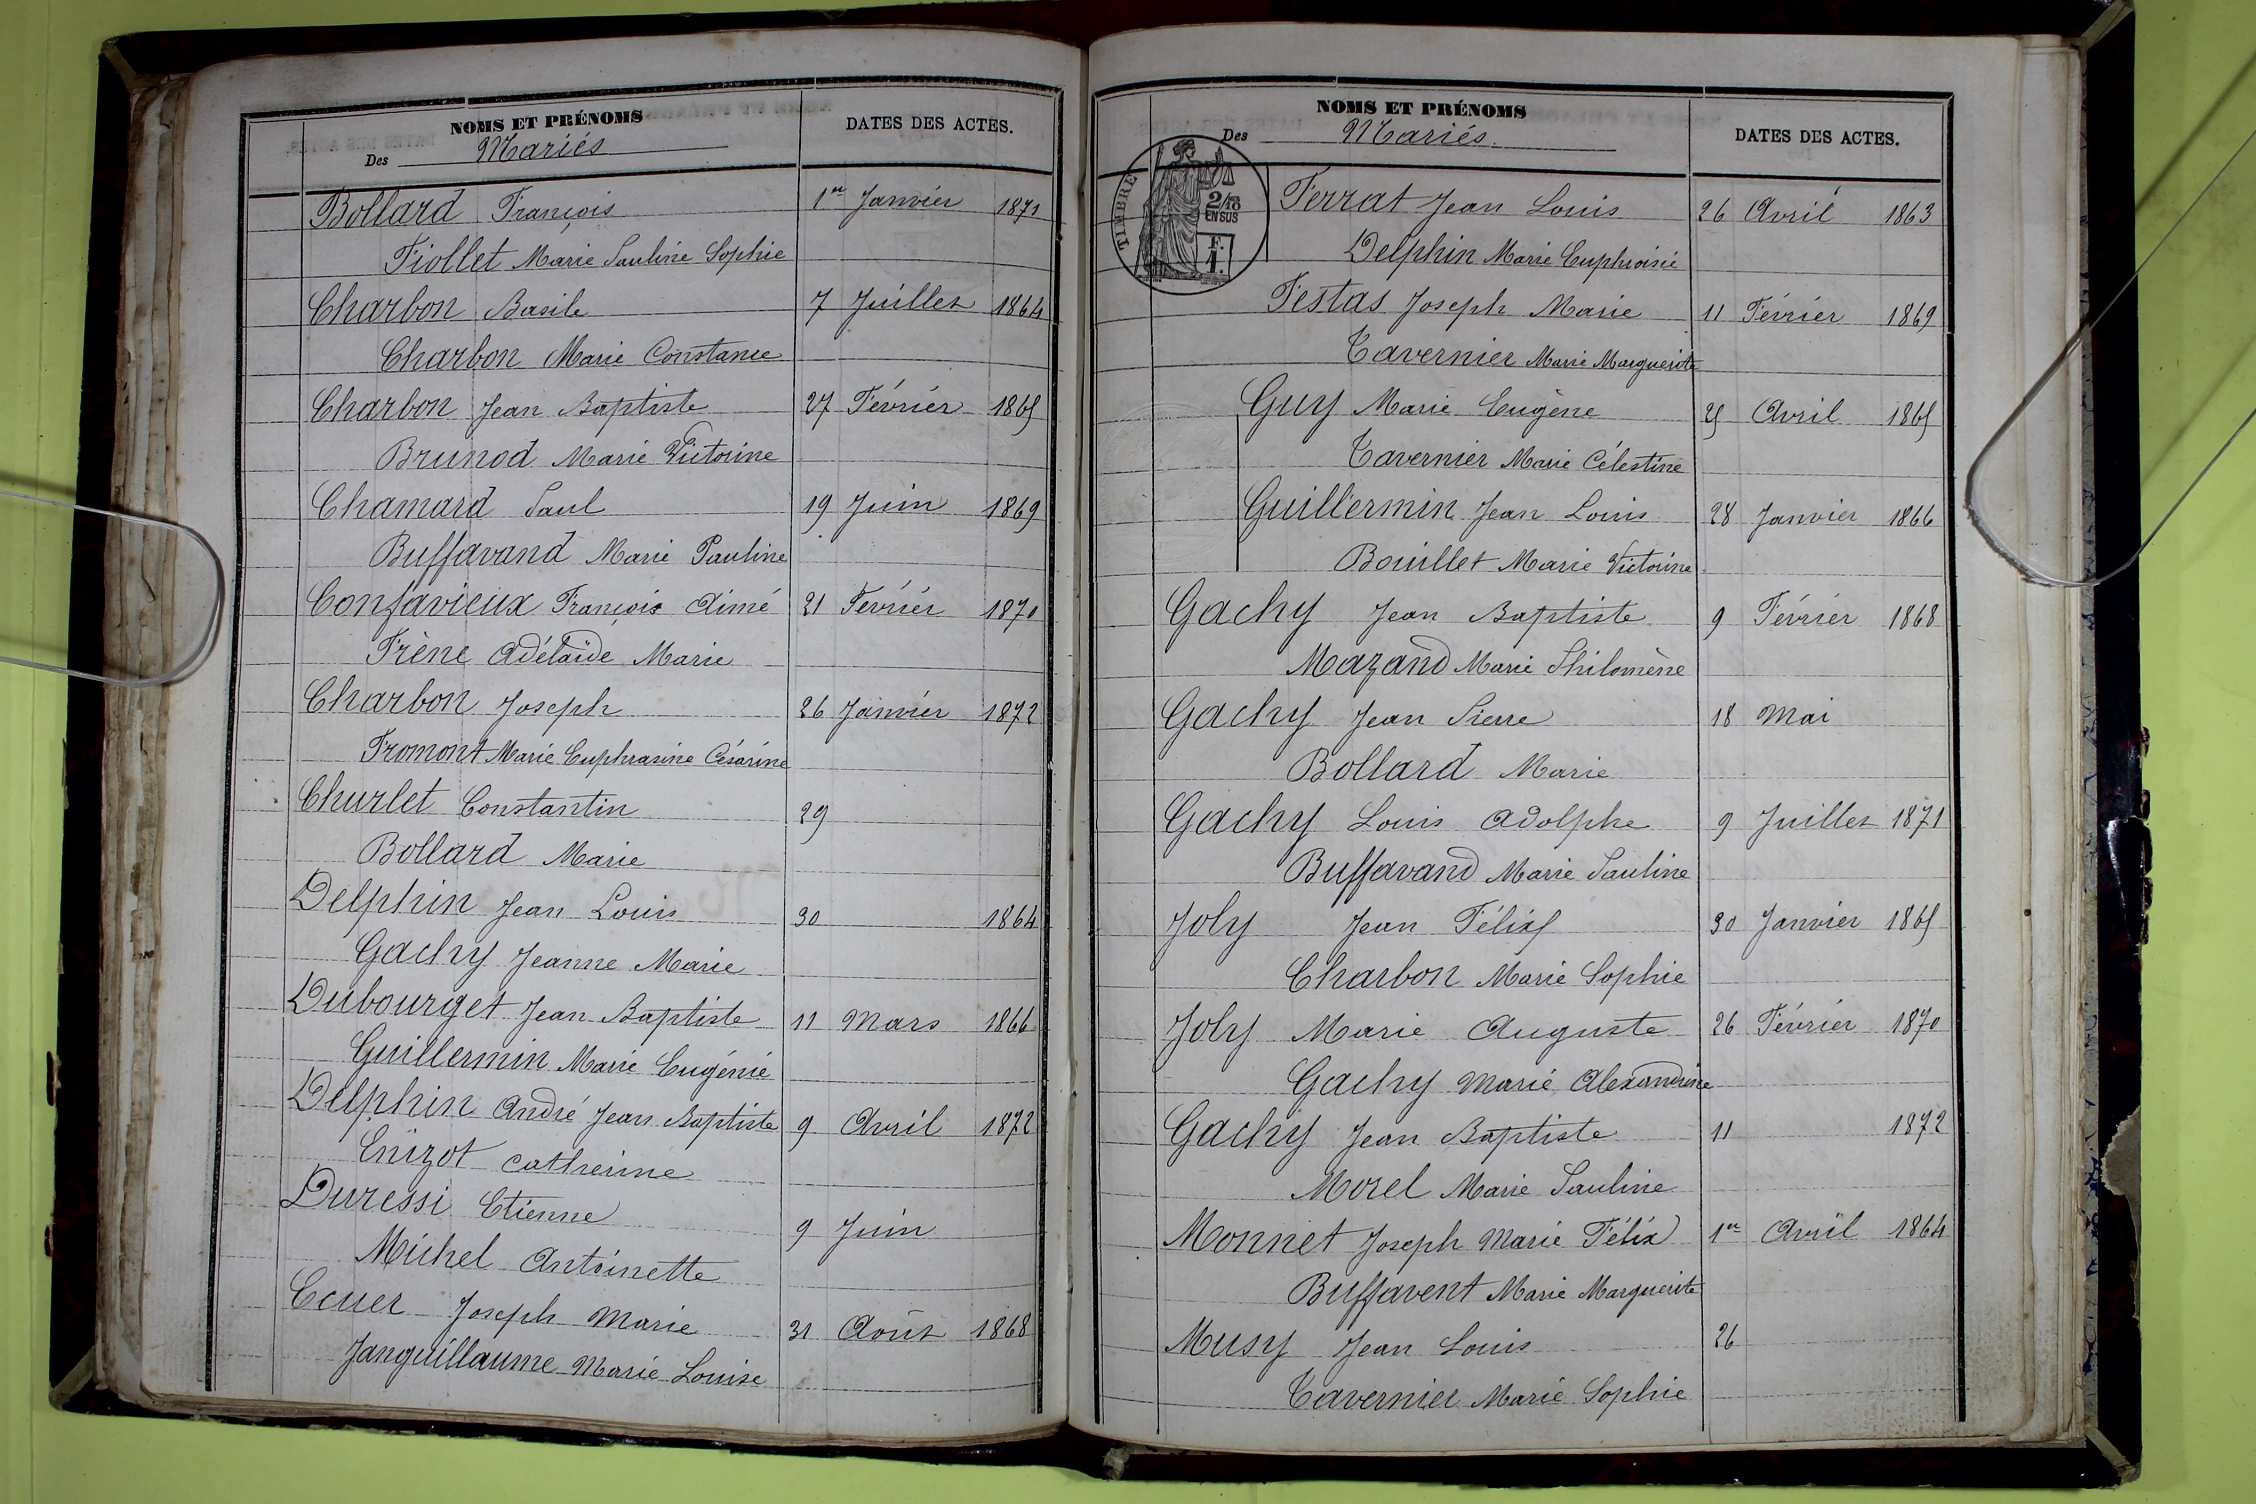 NOMS ET PRÉNOMS
Des Mariés
DATES DES ACTES.
Bollard François 1er Janvier 1871
Fiollet Marie Pauline Sophie
Charbon Basile 7 Juillet 1864
Charbon Marie Constance
Charbon Jean Baptiste 27 Février 1865
Brunod Marie Victorine
Chamard Paul 19 Juin 1869
Buffavand Marie Pauline
Confavieux François Aimé 21 Février 1870
Frène Adélaïde Marie
Charbon Joseph 26 Janvier 1872
Fromont Marie Euphrasine Césarine
Churlet Constantin 29
Bollard Marie
Delphin Jean Louis 30 1864
Gachy Jeanne Marie
Dubourget Jean Baptiste 11 Mars 1866
Guillermin Marie Eugénie
Delphin André Jean Baptiste 9 Avril 1872
Cuizot Catherine
Duressi Etienne 9 Juin
Michel Antoinette
Ecuer Joseph Marie 31 Août 1868
Janguillaume Marie Louise
NOMS ET PRÉNOMS
Des Mariés.
DATES DES ACTES.
TIMBRE
2/10
EN SUS
F.
1.
Ferrat Jean Louis 26 Avril 1863
Delphin Marie Euphroisie
Festas Joseph Marie 11 Février 1869
Tavernier Marie Marguerite
Guy Marie Eugène 25 Avril 1865
Tavernier Marie Célestine
Guillermin Jean Louis 28 Janvier 1866
Bouillet Marie Victorine
Gachy Jean Baptiste 9 Février 1868
Mazand Marie Philomène
Gachy Jean Pierre 18 Mai
Bollard Marie
Gachy Louis Adolphe 9 Juillet 1871
Buffavand Marie Pauline
Joly Jean Félix 30 Janvier 1865
Charbon Marie Sophie
Joly Marie Auguste 26 Février 1870
Gachy Marie Alexandrine
Gachy Jean Baptiste 11 1872
Morel Marie Pauline
Monnet Joseph Marie Félix 1er Avril 1864
Buffavent Marie Marguerite
Musy Jean Louis 26
Tavernier Marie Sophie